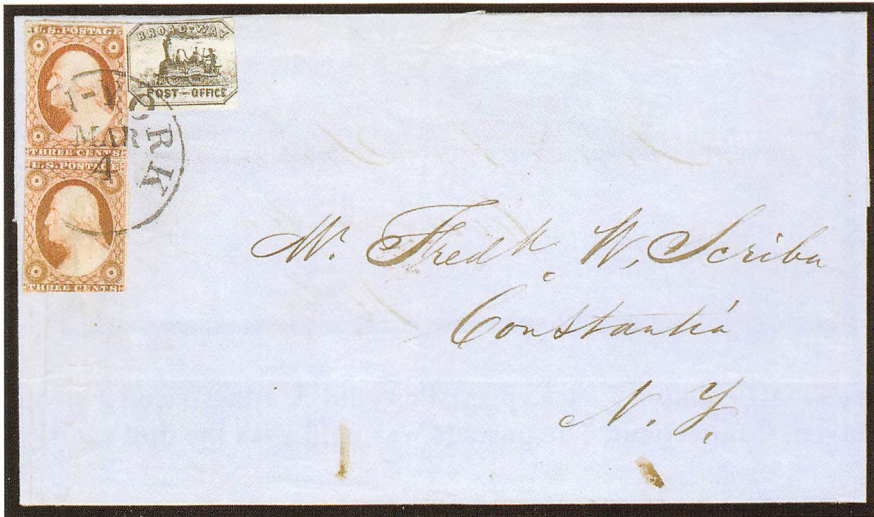 U.S. POSTAGE
THREE CENTS
U.S. POSTAGE
THREE CENTS
BROADWAY
POST-OFFICE
YORK
MAR
4
Mr. Fredk. W. Scriba
Constantia
N. Y.